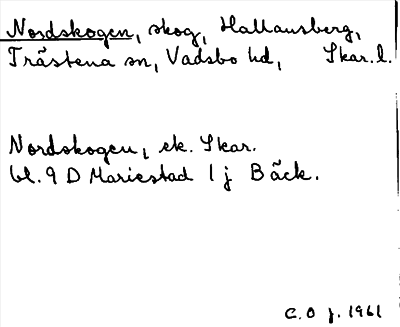 Nordskogen, skog, Hallansberg,
Trästena sn, Vadsbo hd, Skar. l.
Nordskogen, ek. Skar.
bl. 9 D Mariestad 1 j Bäck.
C. O j. 1961